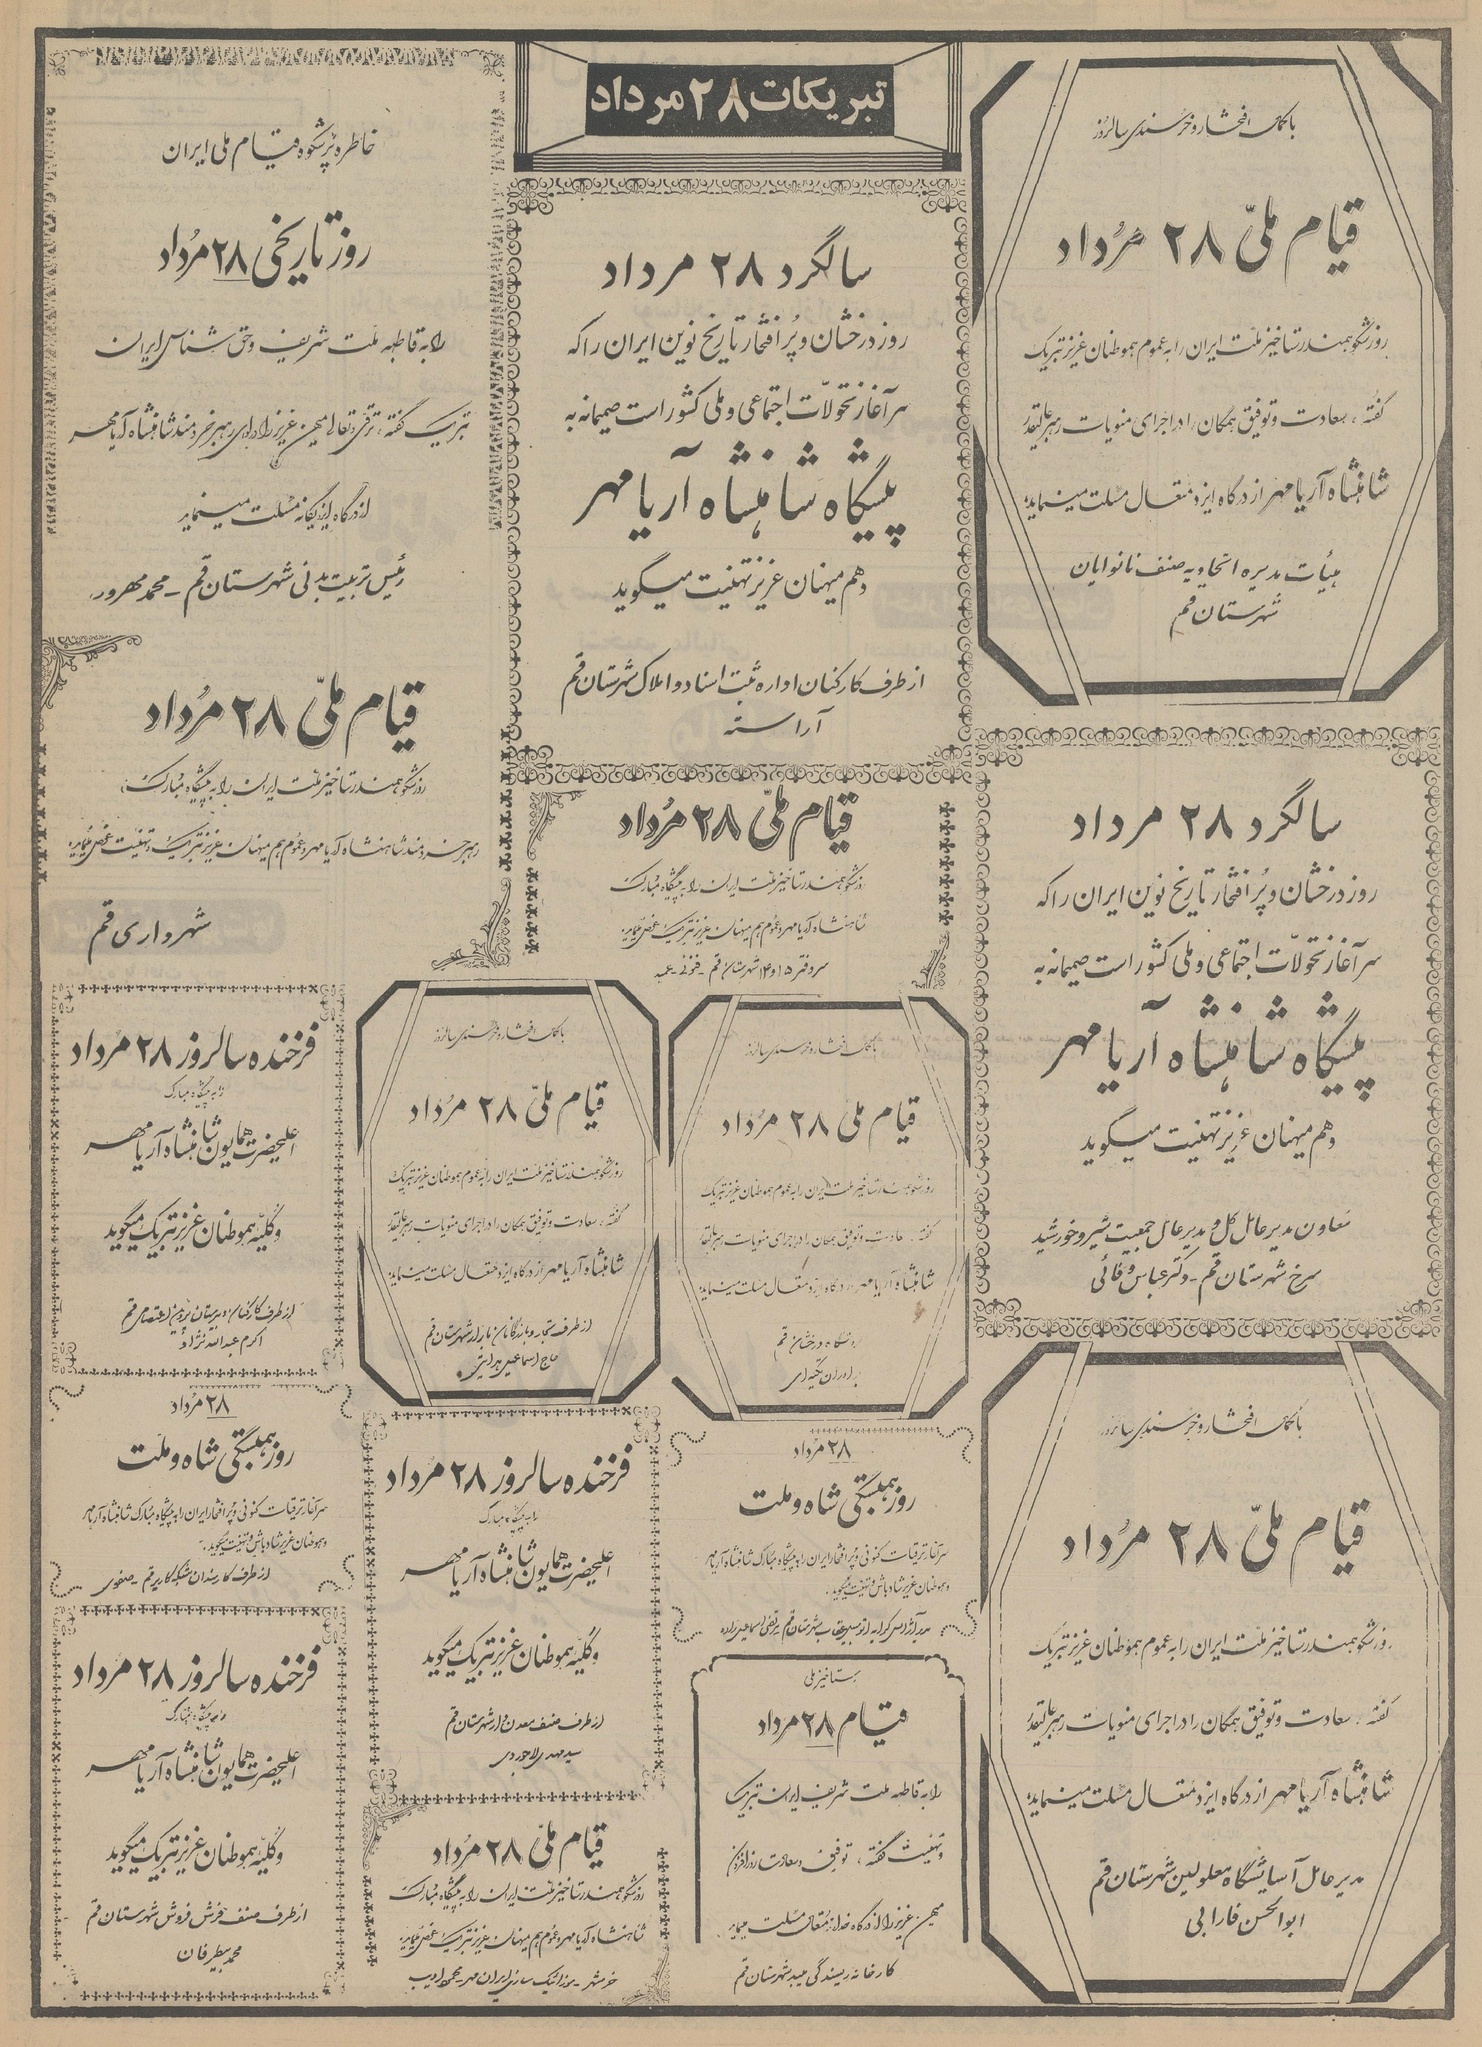 تبریکات ۲۸ مرداد
با کمال افتخار و خرسندی سالروز
قیام ملّی ۲۸ مرداد
روز شکوهمند رستاخیز ملت ایران را به عموم هموطنان عزیز تبریک
گفته، سعادت و توفیق همگان را در اجرای منویات رهبر عالیقدر
شاهنشاه آریامهر از درگاه ایزد متعال مسئلت مینماید
هیأت مدیره اتحادیه صنف نانوایان
شهرستان قم
سالگرد ۲۸ مرداد
روز درخشان و پر افتخار تاریخ نوین ایران را که
سرآغاز تحولّات اجتماعی و ملی کشور است صمیمانه به
پیشگاه شاهنشاه آریامهر
و هم میهنان عزیز تهنیت میگوید
معاون مدیر عامل کل و مدیر عامل جمعیت شیر و خورشید
سرخ شهرستان قم - دکتر عباس وفائی
با کمال افتخار و خرسندی سالروز
قیام ملّی ۲۸ مرداد
روز شکوهمند رستاخیز ملت ایران را به عموم هموطنان عزیز تبریک
گفته، سعادت و توفیق همگان را در اجرای منویات رهبر عالیقدر
شاهنشاه آریامهر از درگاه ایزد متعال مسئلت مینماید
مدیر عامل آسایشگاه معلولین شهرستان قم
ابوالحسن فارابی
سالگرد ۲۸ مرداد
روز درخشان و پر افتخار تاریخ نوین ایران را که
سرآغاز تحولّات اجتماعی و ملی کشور است صمیمانه به
پیشگاه شاهنشاه آریامهر
و هم میهنان عزیز تهنیت میگوید
از طرف کارکنان اداره ثبت اسناد و املاک شهرستان قم
آراسته
قیام ملّی ۲۸ مرداد
روز شکوهمند رستاخیز ملت ایران را به پیشگاه مبارک
شاهنشاه آریامهر و عموم هم میهنان عزیز تبریک عرض مینماید
سردفتر ۱۵ و ۱۴ شهرستان قم -
با کمال افتخار و خرسندی سالروز
قیام ملّی ۲۸ مرداد
روز شکوهمند رستاخیز ملت ایران را به عموم هموطنان عزیز تبریک
گفته، سعادت و توفیق همگان را در اجرای منویات رهبر عالیقدر
شاهنشاه آریامهر از درگاه ایزد متعال مسئلت مینماید
فروشگاه درخشان قم
برادران
۲۸ مرداد
روز همبستگی شاه و ملت
سرآغاز ترقیات کنونی و پر افتخار ایران را به پیشگاه مبارک شاهنشاه آریامهر
و هموطنان عزیز شادباش و تهنیت میگوید.
رستاخیز ملی
قیام ۲۸ مرداد
را به قاطبه ملت شریف ایران تبریک
و تهنیت گفته، توفیق و سعادت روزافزون
میهن عزیز را از درگاه خداوند متعال مسئلت مینماید
کارخانه ریسندگی شهرستان قم
خاطره پرشکوه قیام ملی ایران
روز تاریخی ۲۸ مرداد
را به قاطبه ملت شریف و حق شناس ایران
تبریک گفته، ترقی و تعالی میهن عزیز را در لوای رهبر خردمند شاهنشاه آریامهر
از درگاه ایزد یگانه مسئلت مینماید
رئیس تربیت بدنی شهرستان قم - محمد مهرور
قیام ملّی ۲۸ مرداد
روز شکوهمند رستاخیز ملت ایران را به پیشگاه مبارک
رهبر خردمند شاهنشاه آریامهر و عموم هم میهنان عزیز تبریک و تهنیت عرض مینماید
شهرداری قم
با کمال افتخار و خرسندی سالروز
قیام ملّی ۲۸ مرداد
روز شکوهمند رستاخیز ملت ایران را به عموم هموطنان عزیز تبریک
گفته، سعادت و توفیق همگان را در اجرای منویات رهبر عالیقدر
شاهنشاه آریامهر از درگاه ایزد متعال مسئلت مینماید
از طرف تجار و بازرگانان بازار شهرستان قم
حاج اسماعیل هدایتی
فرخنده سالروز ۲۸ مرداد
را به پیشگاه مبارک
اعلیحضرت همایون شاهنشاه آریامهر
و کلیّه هموطنان عزیز تبریک میگوید
از طرف صنف معدن دار شهرستان قم
سید مهدی لاجوردی
قیام ملّی ۲۸ مرداد
روز شکوهمند رستاخیز ملت ایران را به پیشگاه مبارک
شاهنشاه آریامهر و عموم هم میهنان عزیز تبریک عرض مینماید
موزائیک سازی ایران مهر - محمود ادیب
فرخنده سالروز ۲۸ مرداد
را به پیشگاه مبارک
اعلیحضرت همایون شاهنشاه آریامهر
و کلیّه هموطنان عزیز تبریک میگوید
از طرف کارکنان دبیرستان پروین اعتصامی قم
اکرم عبدالله نژاد
۲۸ مرداد
روز همبستگی شاه و ملت
سرآغاز ترقیات کنونی و پر افتخار ایران را به پیشگاه مبارک شاهنشاه آریامهر
و هموطنان عزیز شادباش و تهنیت میگوید.
صفوی
فرخنده سالروز ۲۸ مرداد
را به پیشگاه مبارک
اعلیحضرت همایون شاهنشاه آریامهر
و کلیّه هموطنان عزیز تبریک میگوید
از طرف صنف فرش فروش شهرستان قم
محمد بیطرفان